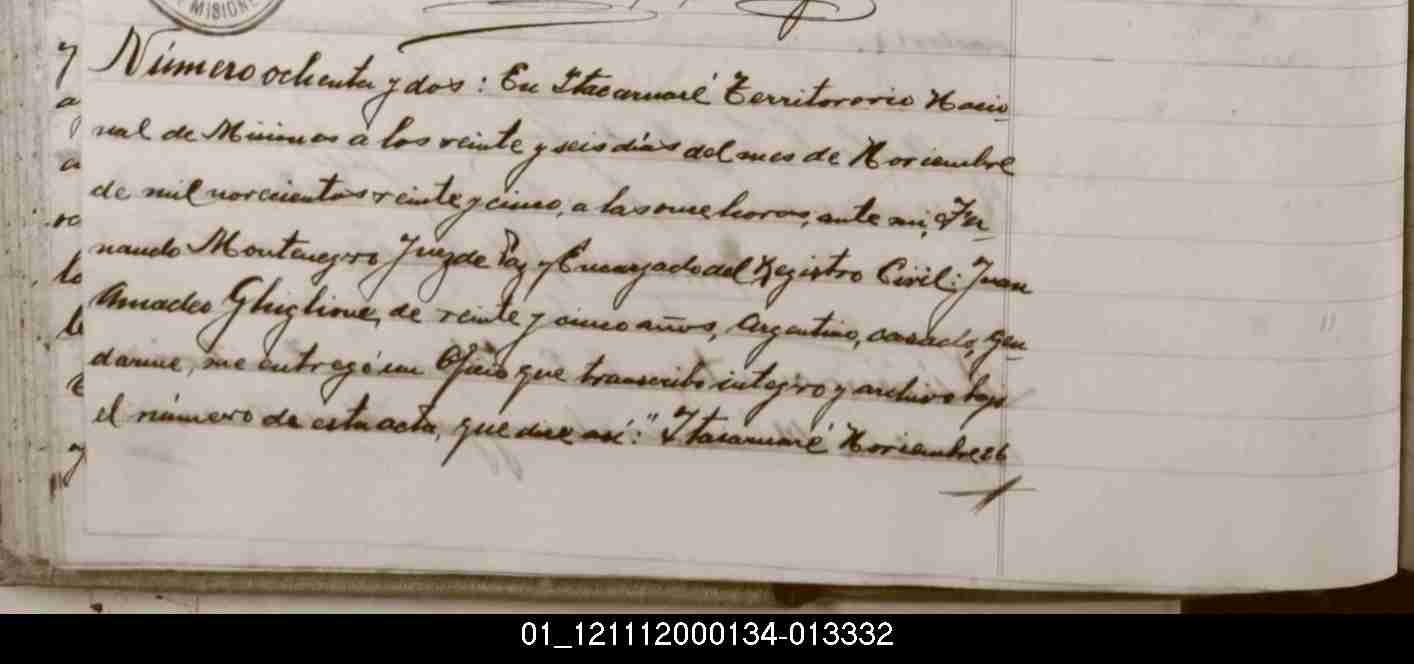 MISIONE
Número ochenta y dos: En Itacaruaré Territororio Nacio
nal de Misiones a los veinte y seis días del mes de Noviembre
de mil novecientos veinte y cinco, a las nueve horas, ante mi, Fer
nando Montenegro Juez de Paz y Encargado del Registro Civil: Juan
Amadeo Ghiglione, de veinte y cinco años, Argentino, casado, gen
darme, me entregó un Oficio que transcribo integro y archivo bajo
el número de esta acta, que dice así: "Itacaruaré Noviembre 26
01_121112000134-013332